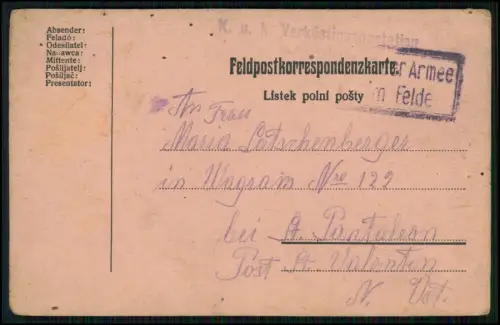 Absender:
Feladó:
Odesílatel:
Nadawca:
Mittente:
Pošiljatelj:
Pošiljač:
Presentator:
K. u. k. Verköstigungsstation
Feldpostkorrespondenzkarte.
Lístek polní pošty
der Armee
im Felde
An Frau
Maria Latschenberger
in Wagram Nro 122
bei St. Pantaleon
Post St. Valentin
N. Öst.